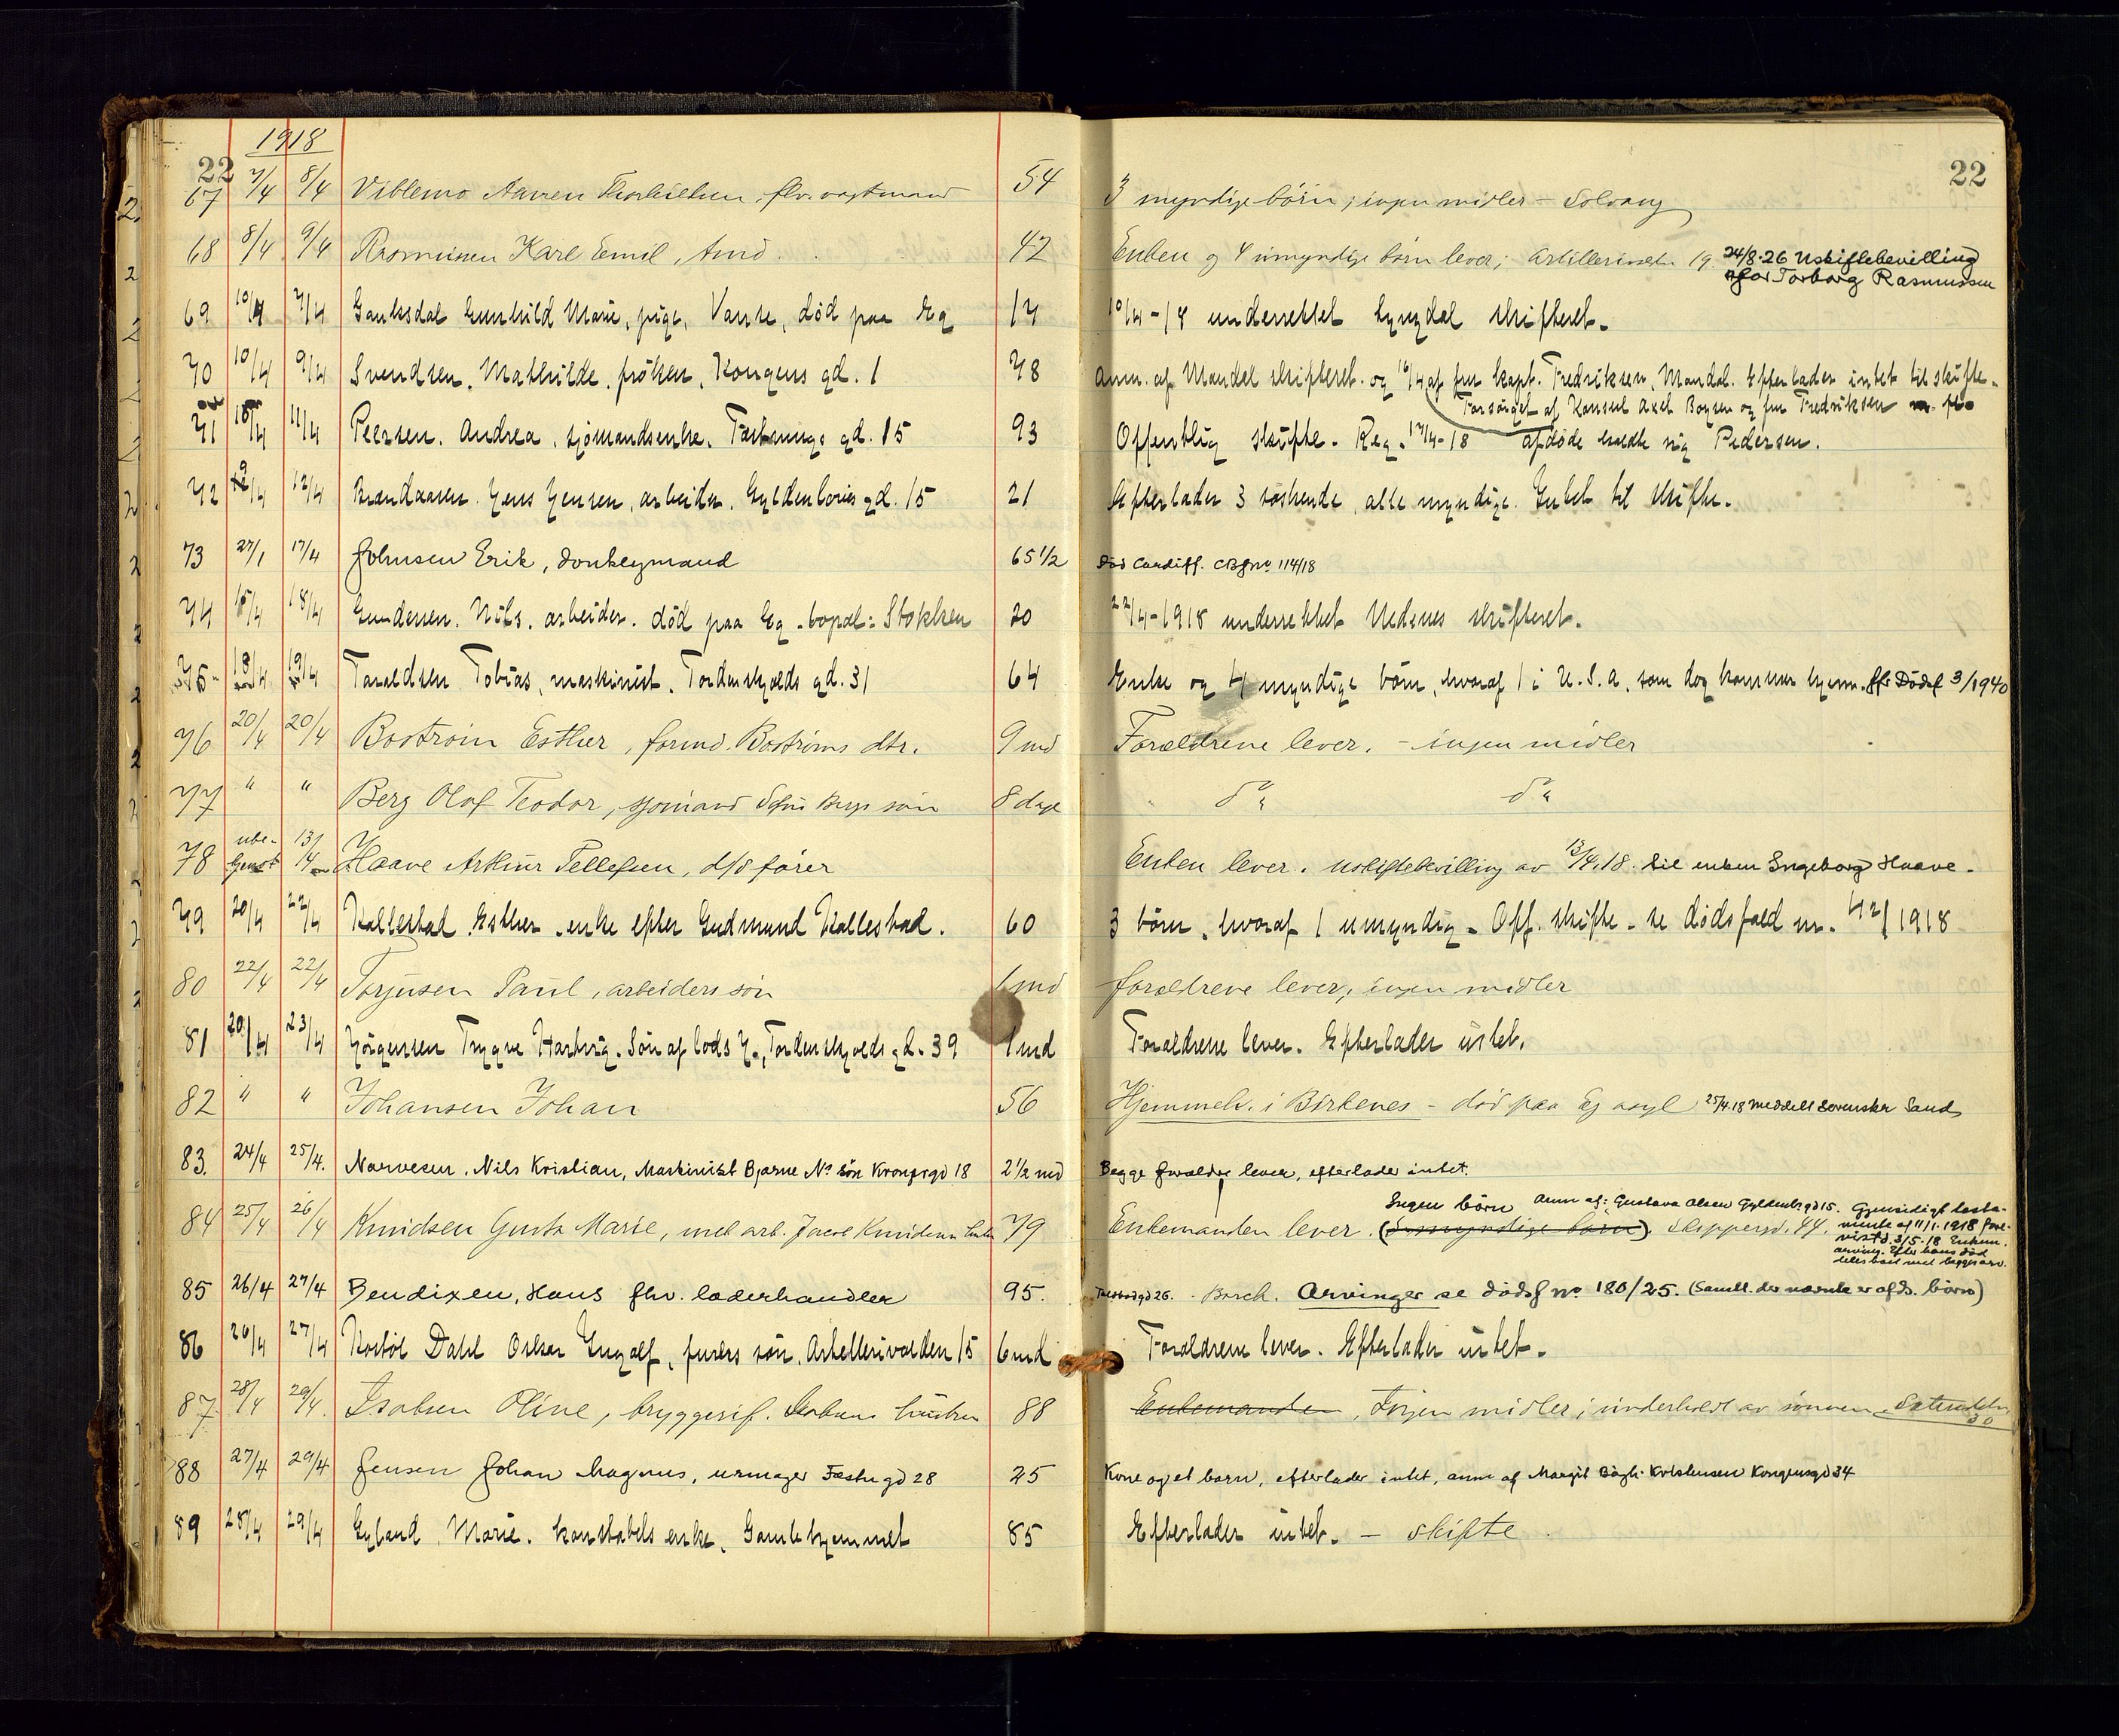 1918
22 22
67 7/4 8/4 Viblemo Aanen Thorkildsen, flv. vagtmand 54 3 myndige börn; ingen midler - Solvang
68 8/4 9/4 Rasmussen Karl Emil, 42 Enken og 4 umyndige børn lever; Artilleriveien 19. 24/8-26 Uskiftebevilling
for Torborg Rasmussen
69 10/4 7/4 Gunhild Marie, pige, Vanse, død paa Eg 14 10/4-18 underrettet Lyngdal skifteret.
70 10/4 9/4 Svendsen, Mathilde, frøken, Kongens gd. 1 78 Anm. af Mandal skifteret. og 16/4 af fru kapt. Fredriksen, Mandal. Efterlader intet til skifte.
Forsørget af Konsul Axel Boysen og fru Fredriksen
71 10/4 11/4 Peersen, Andrea, sjömandsenke, Fæstnings gd. 15 93 Offentlig skifte. Reg. 17/4-18 afdøde kaldte sig Pedersen.
72 9/4 12/4 Jens Jensen, arbeider, Gyldenløvies gd. 15 21 Efterlader 3 søskende, alle myndige. Intet til skifte.
73 27/1 17/4 Johnsen Erik, donkeymand 65 1/2 Død Cardiff. no 114/18
74 15/4 18/4 Gundersen, Nils, arbeider, død paa Eg. bopæl: Stokken 20 22/4-1918 underrettet Nedenes skifteret.
75 18/4 19/4 Taraldsen Tobias, maskinist, Tordenskjolds gd. 31 64 Enke og 4 myndige børn, hvoraf 1 i U.S.A. som dog kommer hjem. Dødsf 3/1940
76 20/4 20/4 Bostrøm Esther, formd. Bostrøms dtr. 9 md Forældrene lever. - ingen midler
77 " " Berg Olaf Teodor, sjømand Bergs søn 8 dage do do
78 ube-
kjent 13/4 Haave Arthur Tellefsen, d/s fører Enken lever. Uskiftebevilling av 13/4.18. til enken Ingeborg Haave.
79 20/4 22/4 Kallestad Esther, enke efter Gudmund Kallestad. 60 3 børn, hvoraf 1 umyndig. Off. skifte - se dødsfald nr. 42/1918
80 22/4 22/4 Torjusen Paul, arbeiders søn 1 md forældrene lever; ingen midler
81 20/4 23/4 Jörgensen Trygve Hartvig. Søn af lods J., Tordenskjolds gd. 39 1 md Forældrene lever. Efterlader intet.
82 " " Johansen Johan 56 Hjemmeh. i Birkenes - død paa Eg asyl 25/4.18 meddelt Sorensk
83. 24/4 25/4. Narvesen, Nils Kristian, Maskinist Bjarne Ns søn Kronprgd 18 2 1/2 md Begge forældre lever, efterlader intet.
84 25/4 26/4 Knudsen Marie, Jacob Knudsens 79 Enkemanden lever. (3 myndige børn) Ingen börn Skippergd. 44. Anm af: Gustava Olsen Gyldenl.gd 15. Gjensidigt testa-
mente af 11/1-1918 fore-
vist d. 3/5-18 Enkem.
arving. Efter hans død
deles boet mel begges arv.
85 26/4 27/4 Bendixen, Hans fhv. læderhandler 95. Arvinger se dødsf no 180/25. (Samtl. der nævnte er afds. börn)
86 26/4 27/4 Dahl Oskar Ingolf, furers søn, Artillerivolden 15 6 md Forældrene lever. Efterlader intet.
87 28/4 29/4. Isaksen Oline, bryggerif. Isaksens hustru 88 Enkemanden, Ingen midler; underholdt av sønnen.
30
88 27/4 29/4 Jensen Johan Magnus, urmager Fæstn gd 28 25 Kone og et barn, efterlader intet, anm af Margit Kristensen Kongensgd 34
89 28/4 29/4 Gyland Marie, konstabels enke, Gamlehjemmet 85 Efterlader intet. - skifte